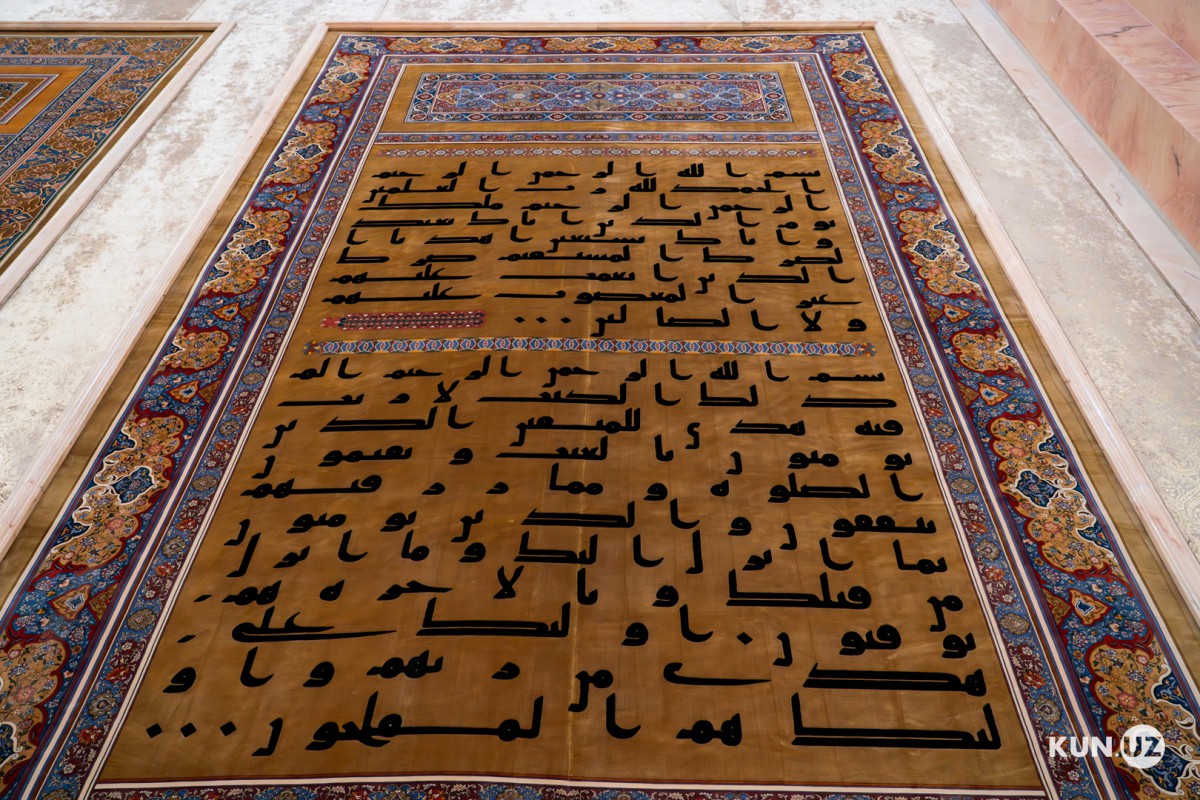 بسم الله الرحمن الرحيم
الحمد لله رب العلمين
الرحمن الرحيم ملك
يوم الدين اياك نعبد
و اياك نستعين اهدنا ا
لصرط المستقيم صرط
الذين انعمت عليهم
غير المغضوب عليهم
ولا الضالين
بسم الله الرحمن الرحيم الم
ذلك الكتب لا ريب
فيه هدى للمتقين الذين
يومنون بالغيب و يقيمون
الصلوه و مما رزقنهم
ينفقون و الذين يومنون
بما انزل اليك و ما انزل
من قبلك و بالاخره هم
يوقنون اولئك على
هدى من ربهم و او
لئك هم المفلحون
KUN.UZ